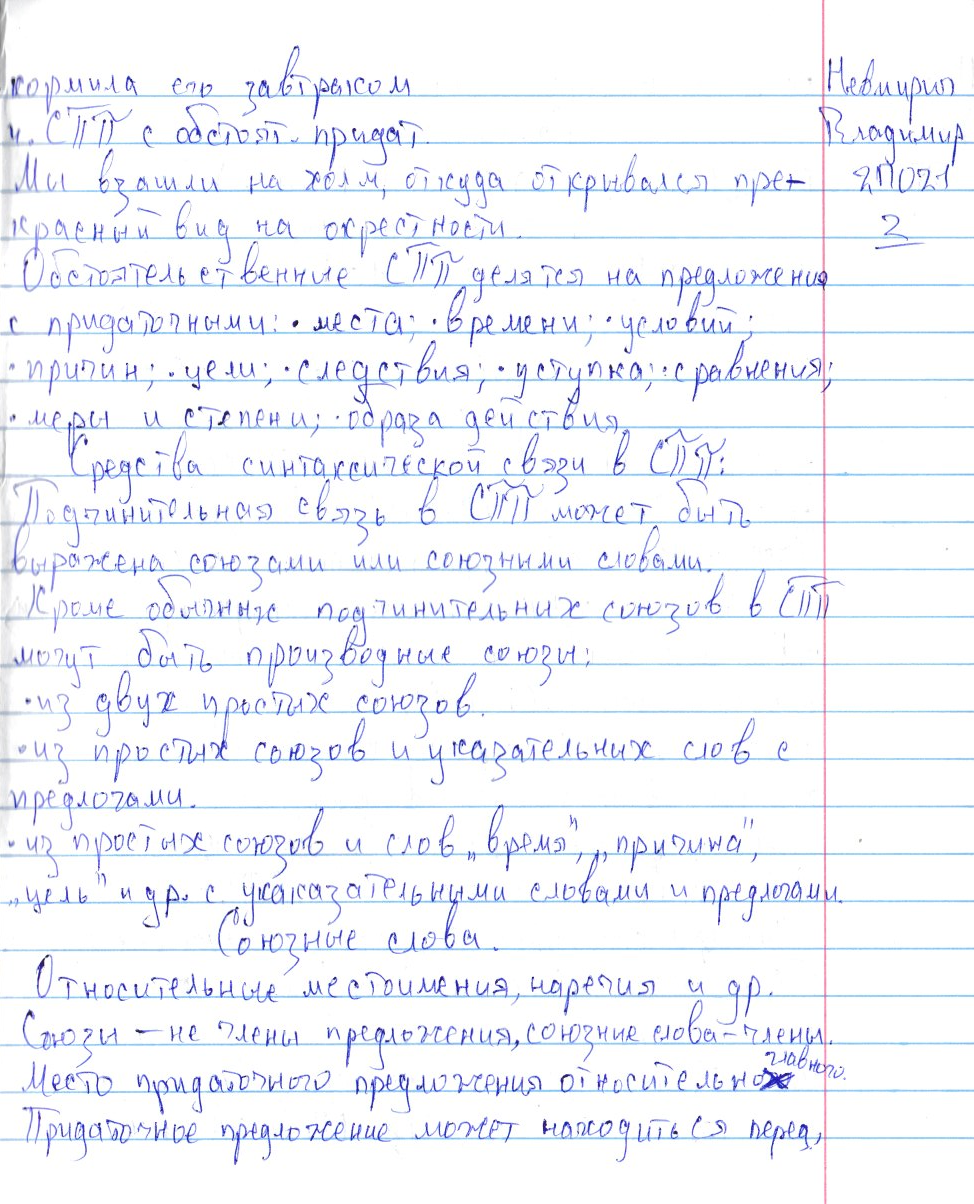 кормила его завтраком
Невмирич
ч. СПП с обстоят. придат.
Владимир
Мы взашли на холм, откуда открывался пре-
2П021
красный вид на окрестности.
2
Обстоятельственные СПП делятся на предложения
с придаточными: · места; · времени; · условий;
· причин; · цели; · следствия; · уступка; · сравнения;
· меры и степени; · образа действия.
Средства синтаксической связи в СПП:
Подчинительная связь в СПП может быть
выражена союзами или союзными словами.
Кроме обычных подчинительних союзов в СПП
могут быть производные союзы:
· из двух простых союзов.
· из простых союзов и указательних слов с
предлогами.
· из простых союзов и слов „время", „причина",
„цель" и др. с укаказательными словами и предлогами.
Союзные слова.
Относительные местоимения, наречия и др.
Союзы – не члены предложения, союзние слова – члены.
Место придаточного предложения относительно главного.
Придаточное предложение может находиться перед,